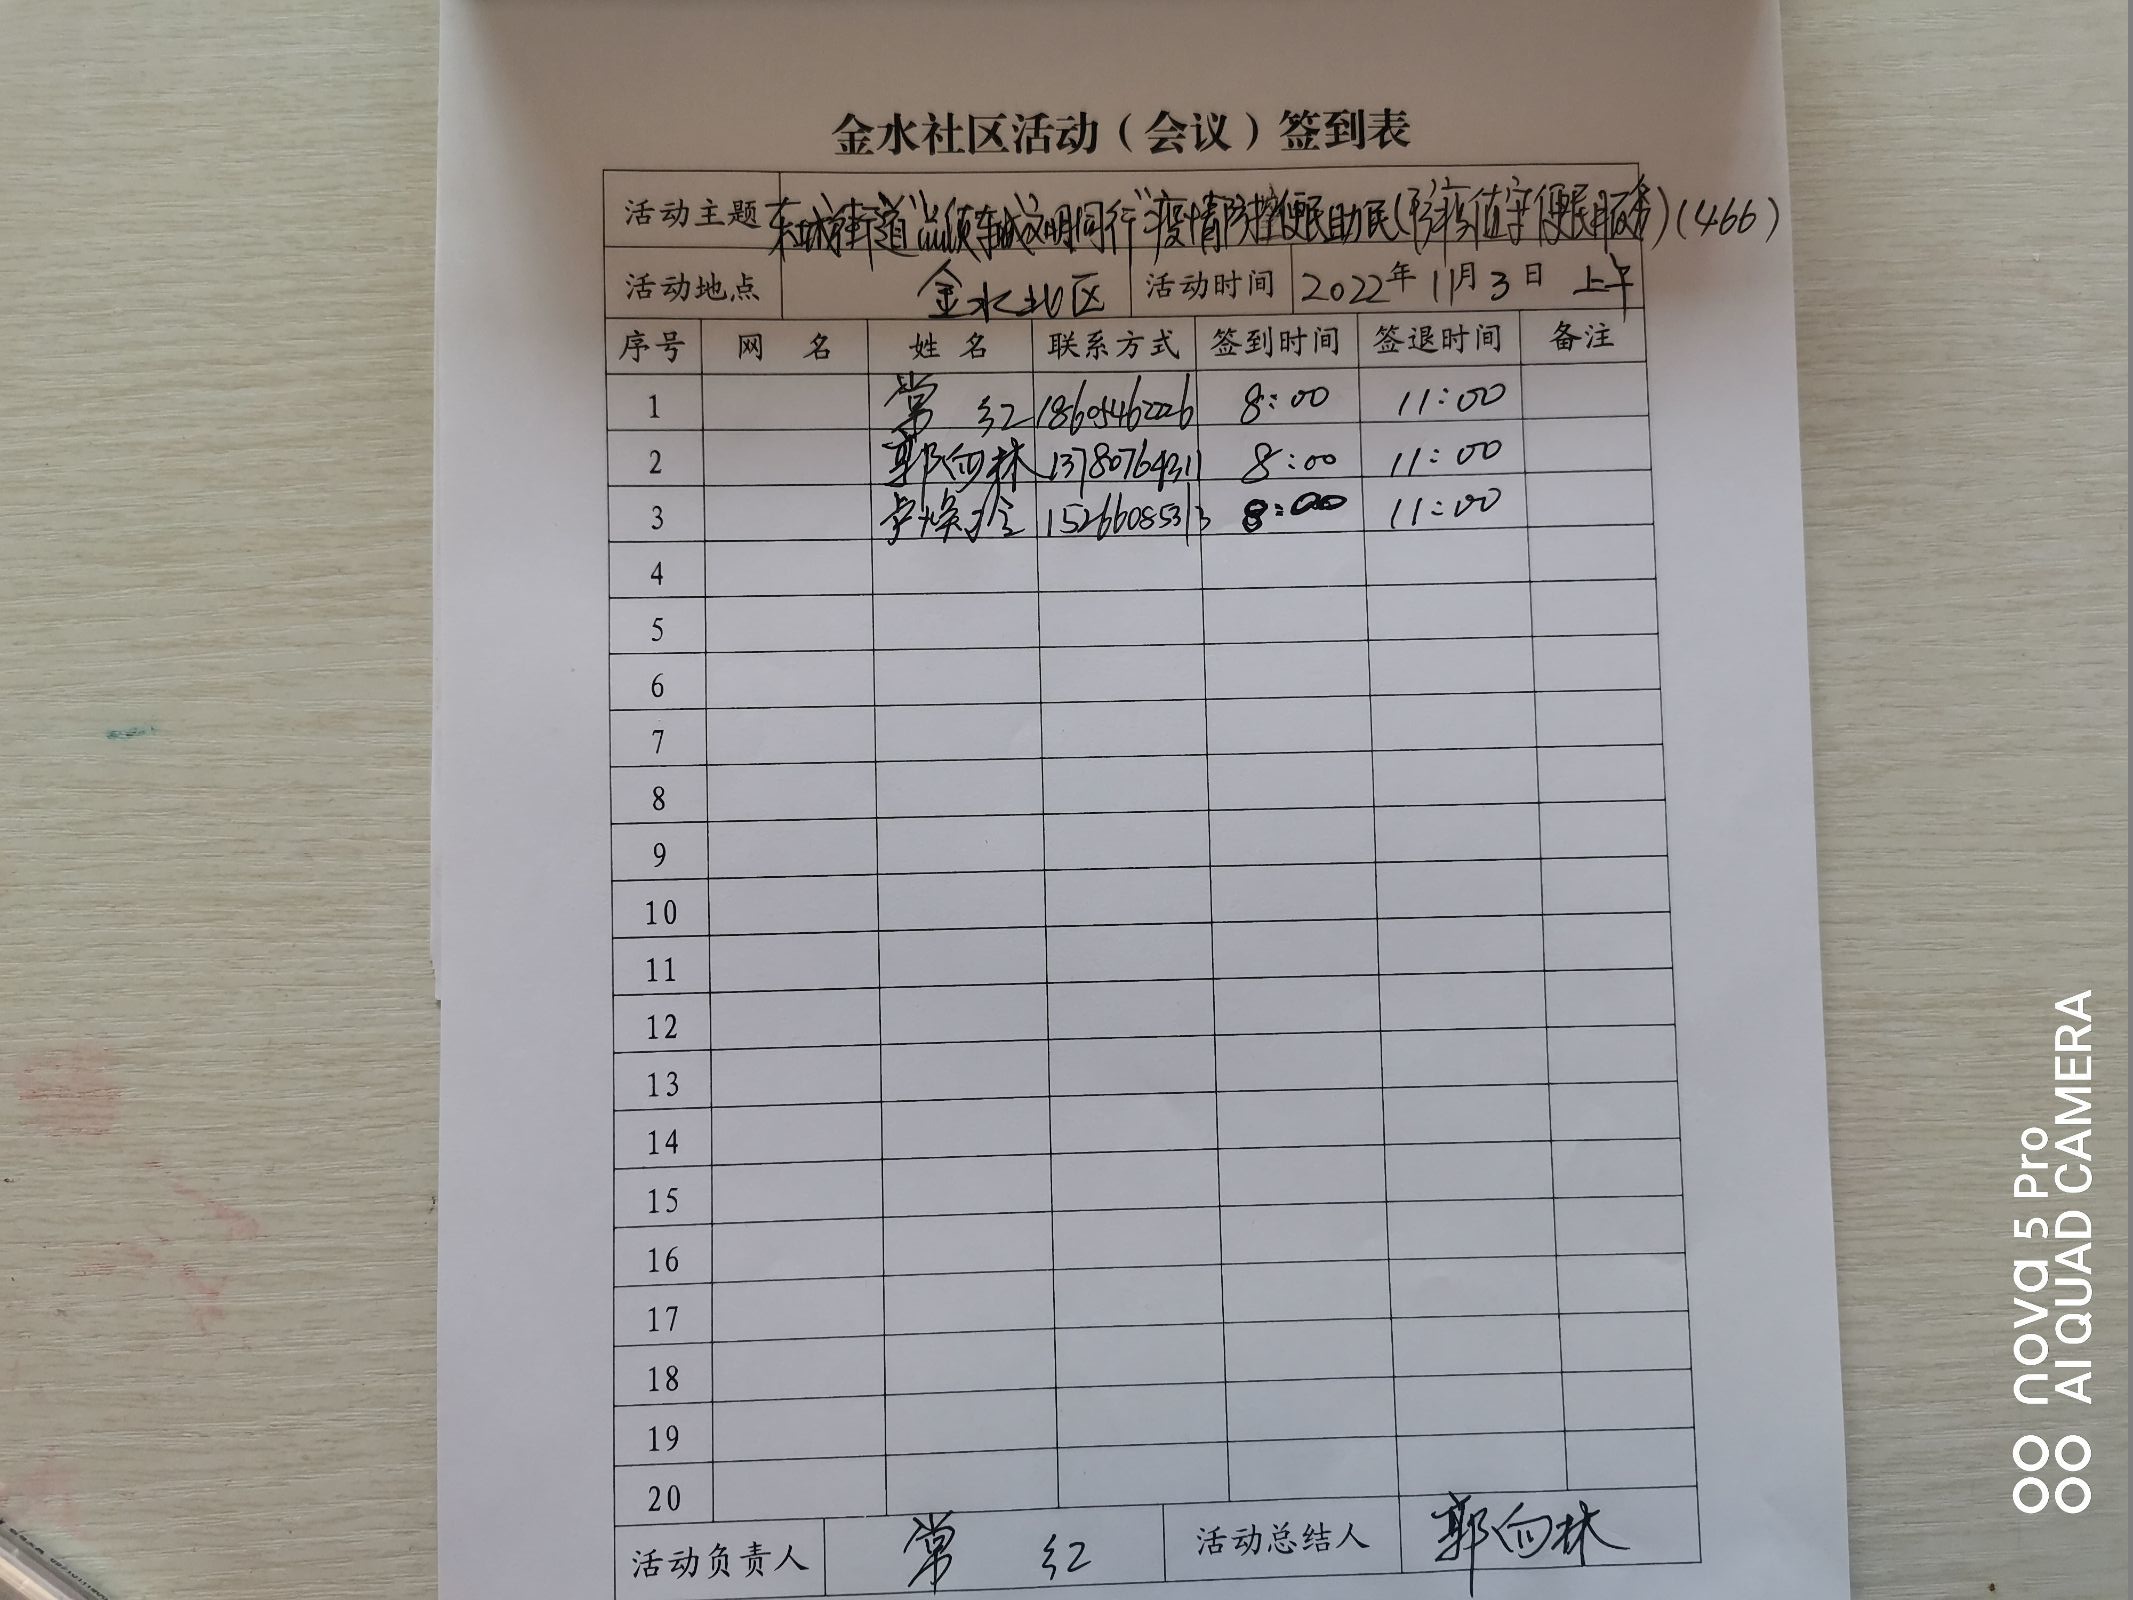 金水社区活动（会议）签到表
活动主题 东城街道"点滴东城文明同行"疫情防控便民助民(防疫值守便民服务)(466)
活动地点 金水北区 活动时间 2022年11月3日 上午
序号 网 名 姓 名 联系方式 签到时间 签退时间 备注
1 常 红 18605462226 8:00 11:00
2 郭向林 13780764311 8:00 11:00
3 15266085313 8:00 11:00
4
5
6
7
8
9
10
11
12
13
14
15
16
17
18
19
20
活动负责人 常 红 活动总结人 郭向林
nova 5 Pro
AI QUAD CAMERA